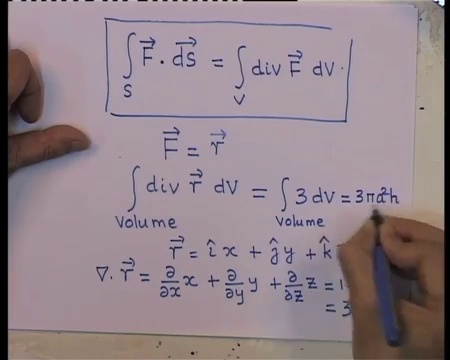 ∫_S F⃗ · dS⃗ = ∫_V div F⃗ dV.
F⃗ = r⃗
∫_volume div r⃗ dV = ∫_volume 3 dV = 3πa²h
r⃗ = î x + ĵ y + k̂
∇. r⃗ = ∂/∂x x + ∂/∂y y + ∂/∂z z = 1
= 3